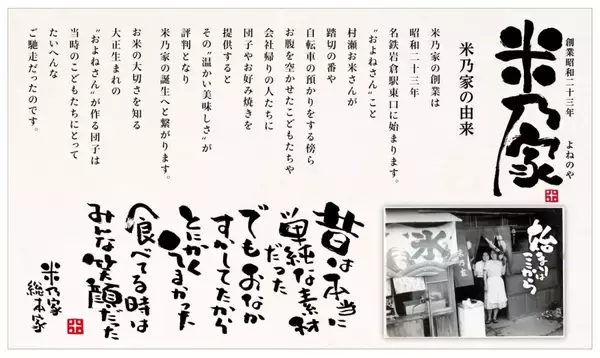 創業昭和二十三年 よねのや
米乃家
米
米乃家の由来
米乃家の創業は
昭和二十三年
名鉄岩倉駅東口に始まります。
“およねさん”こと
村瀬お米さんが
踏切の番や
自転車の預かりをする傍ら
お腹を空かせたこどもたちや
会社帰りの人たちに
団子やお好み焼きを
提供すると
その“温かい美味しさ”が
評判となり
米乃家の誕生へと繋がります。
お米の大切さを知る
大正生まれの
“およねさん”が作る団子は
当時のこどもたちにとって
たいへんな
ご馳走だったのです。
始まりは
ここから
氷
昔は本当に
単純な素材
だった
でもおなか
すかしてたから
とにかく
うまかった
食べてる時は
みんな笑顔だった
米乃家
総本家
米